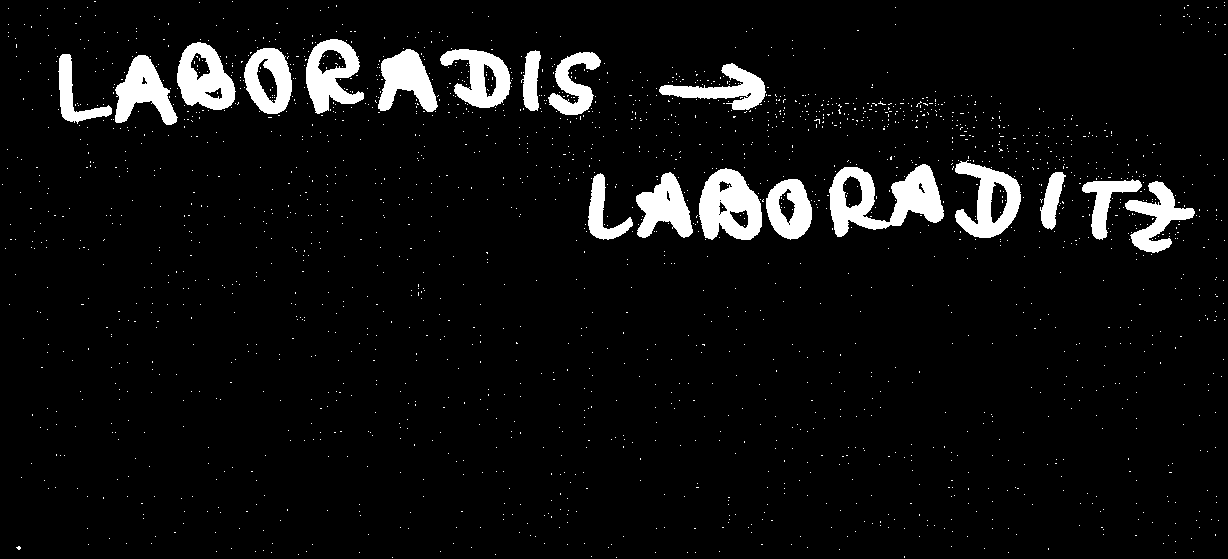 LABORADIS →
LABORADITZ